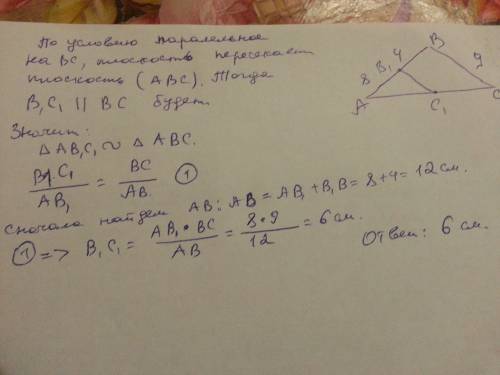 По условию паралельное
на BC, плоскость пересекает
плоскость (ABC). Тогда
B₁C₁ || BC будет.
Значит:
△ AB₁C₁ ∾ △ ABC.
B₁C₁/AB₁ = BC/AB. ①
сначала найдем AB: AB = AB₁ + B₁B = 8+4 = 12 см.
① => B₁C₁ = AB₁ • BC/AB = 8•9/12 = 6 см.
Ответ: 6 см.
B
4
B₁
8
9
A
C₁
C